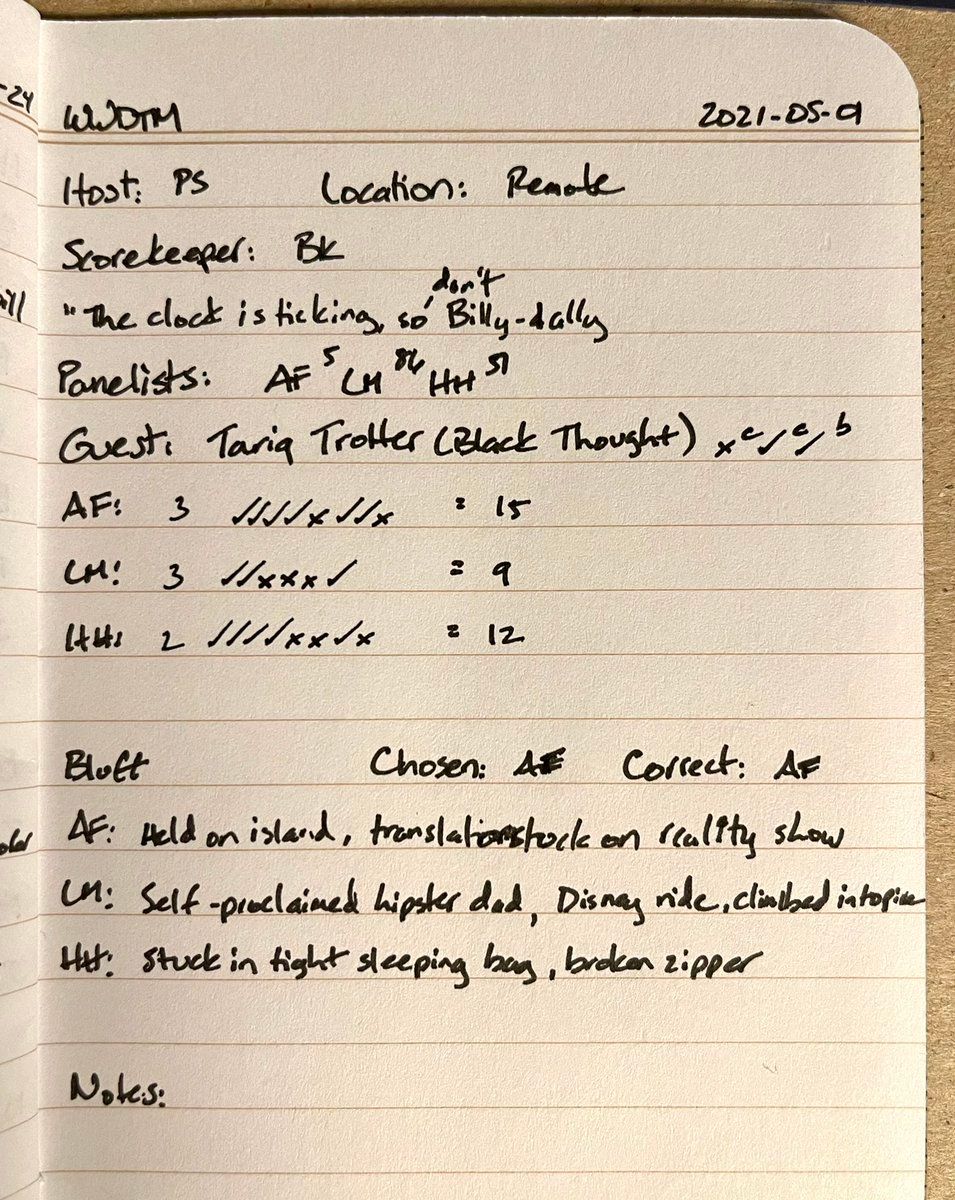 -24
WWDTM 2021-05-01
Host: PS Location: Remote
Scorekeeper: BK
"The clock is ticking, so don't Billy-dally
Panelists: AF 5 LM 86 HH 51
Guest: Tariq Trotter (Black Thought) x c ✓ c ✓ b
AF: 3 ✓✓✓✓x✓✓x = 15
LM: 3 ✓✓xxx✓ = 9
HH: 2 ✓✓✓✓xx✓x = 12
Bluff Chosen: AF Correct: AF
AF: Held on island, translator stuck on reality show
LM: Self-proclaimed hipster dad, Disney ride, climbed into pipe
HH: Stuck in tight sleeping bag, broken zipper
Notes: